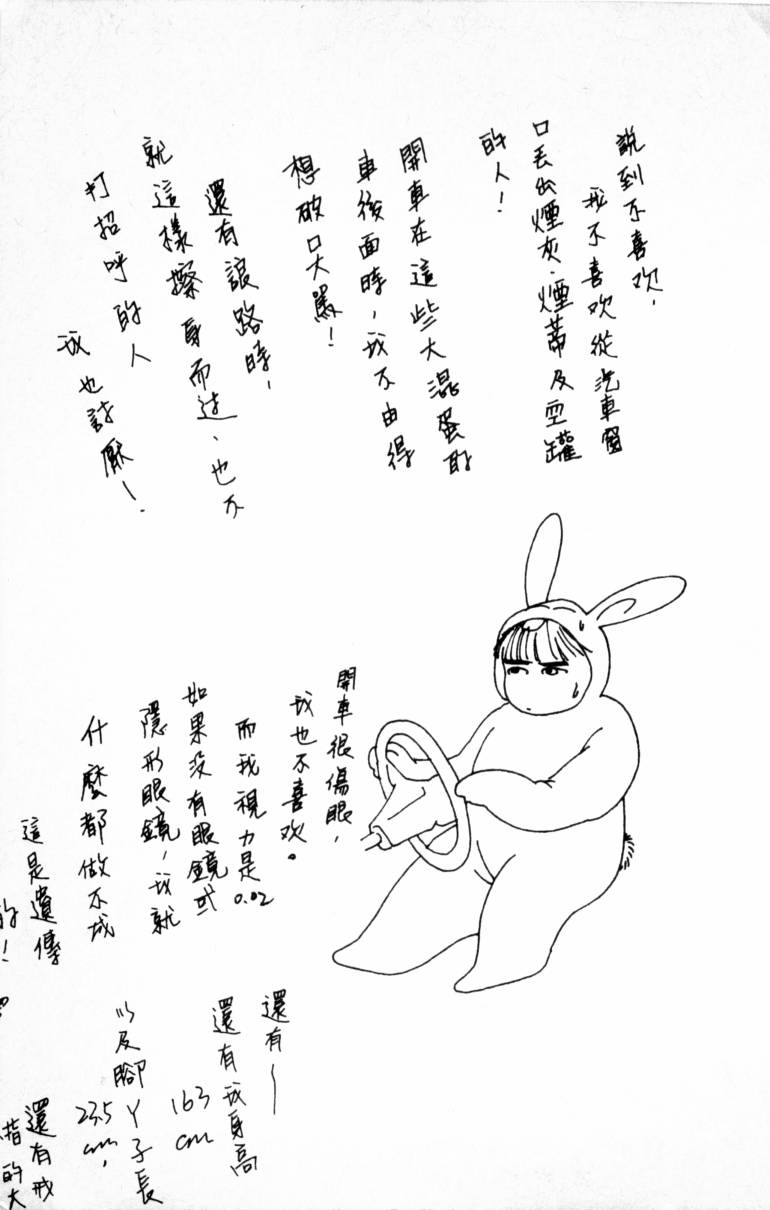 說到不喜欢，
我不喜欢從汽車窗
口丟出煙灰．煙蒂及空罐
的人！
開車在這些大混蛋的
車後面時，我不由得
想破口大罵！
還有誏路時，
就這樣擦身而过、也不
打招呼的人
我也討厭！．
開車很傷眼，
我也不喜欢。
而我視力是0.02
如果没有眼鏡或
隱形眼鏡，我就
什麼都做不成
這是遺傳
的！
還有——
還有我身高
163cm
以及腳丫子長
23.5cm，
還有戒
指的大